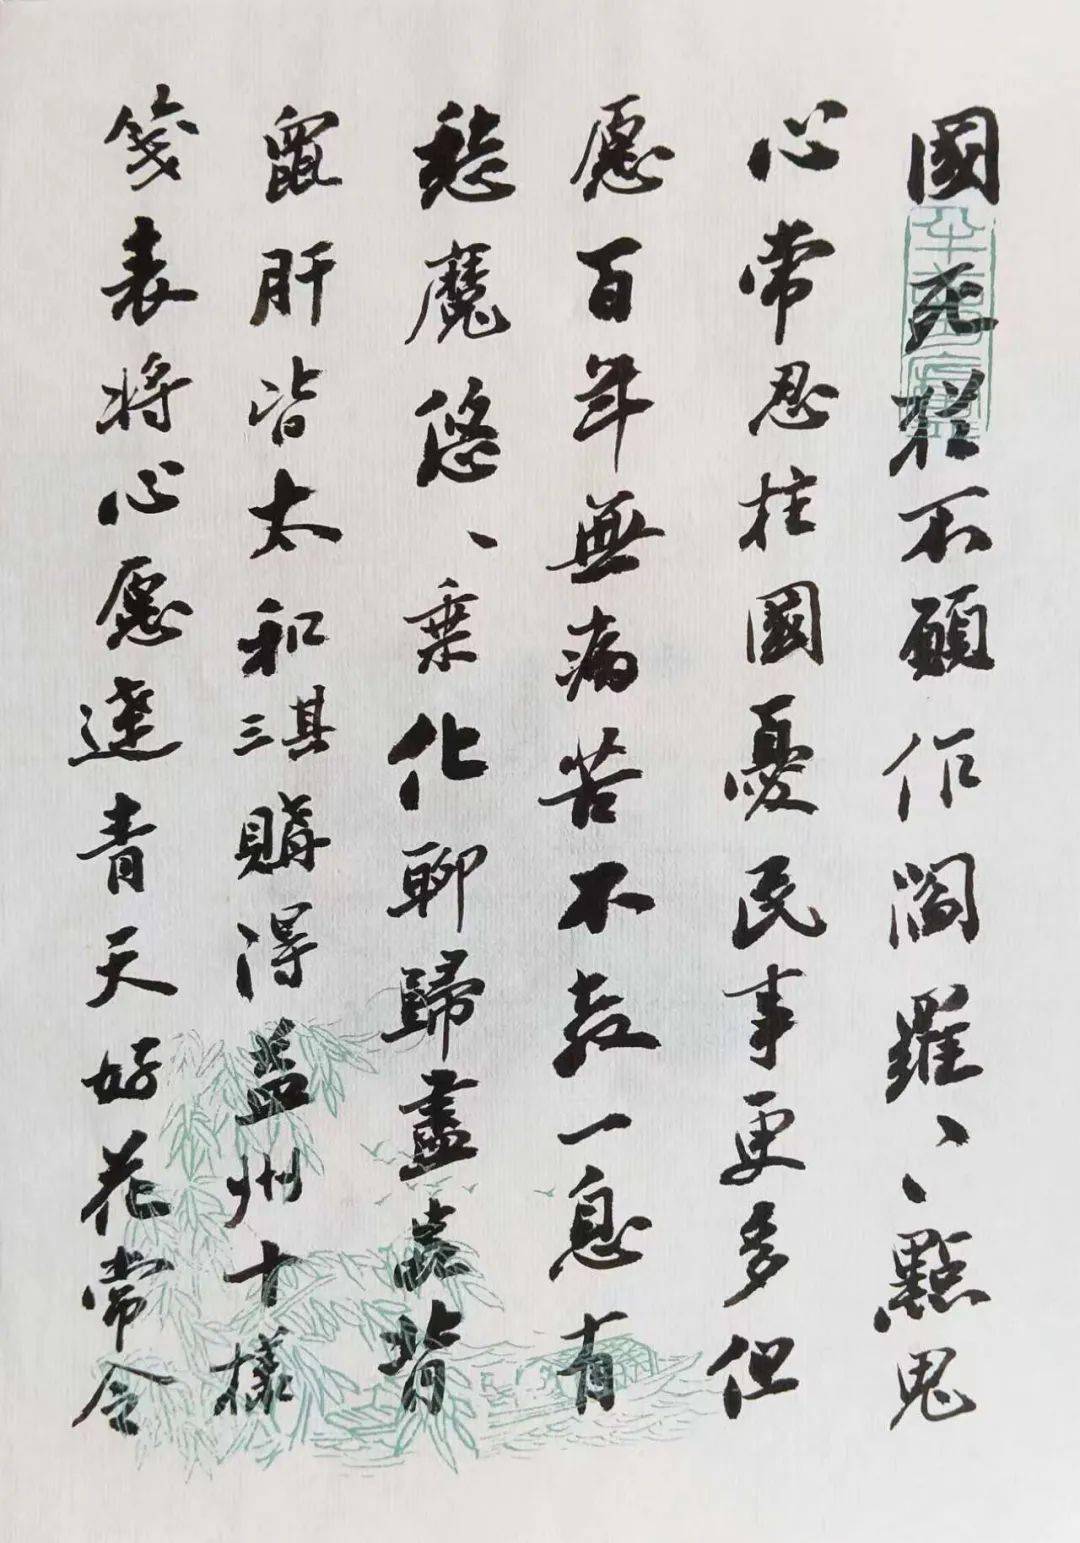 國死於不願作閻羅、、點鬼
心常忍柱國憂民事更多但
愿百年無病苦不教一息有
愁魔悠、乘化聊歸盡虫背
鼠肝皆太和其三購得益州十樣
箋表將心愿達青天好花常令